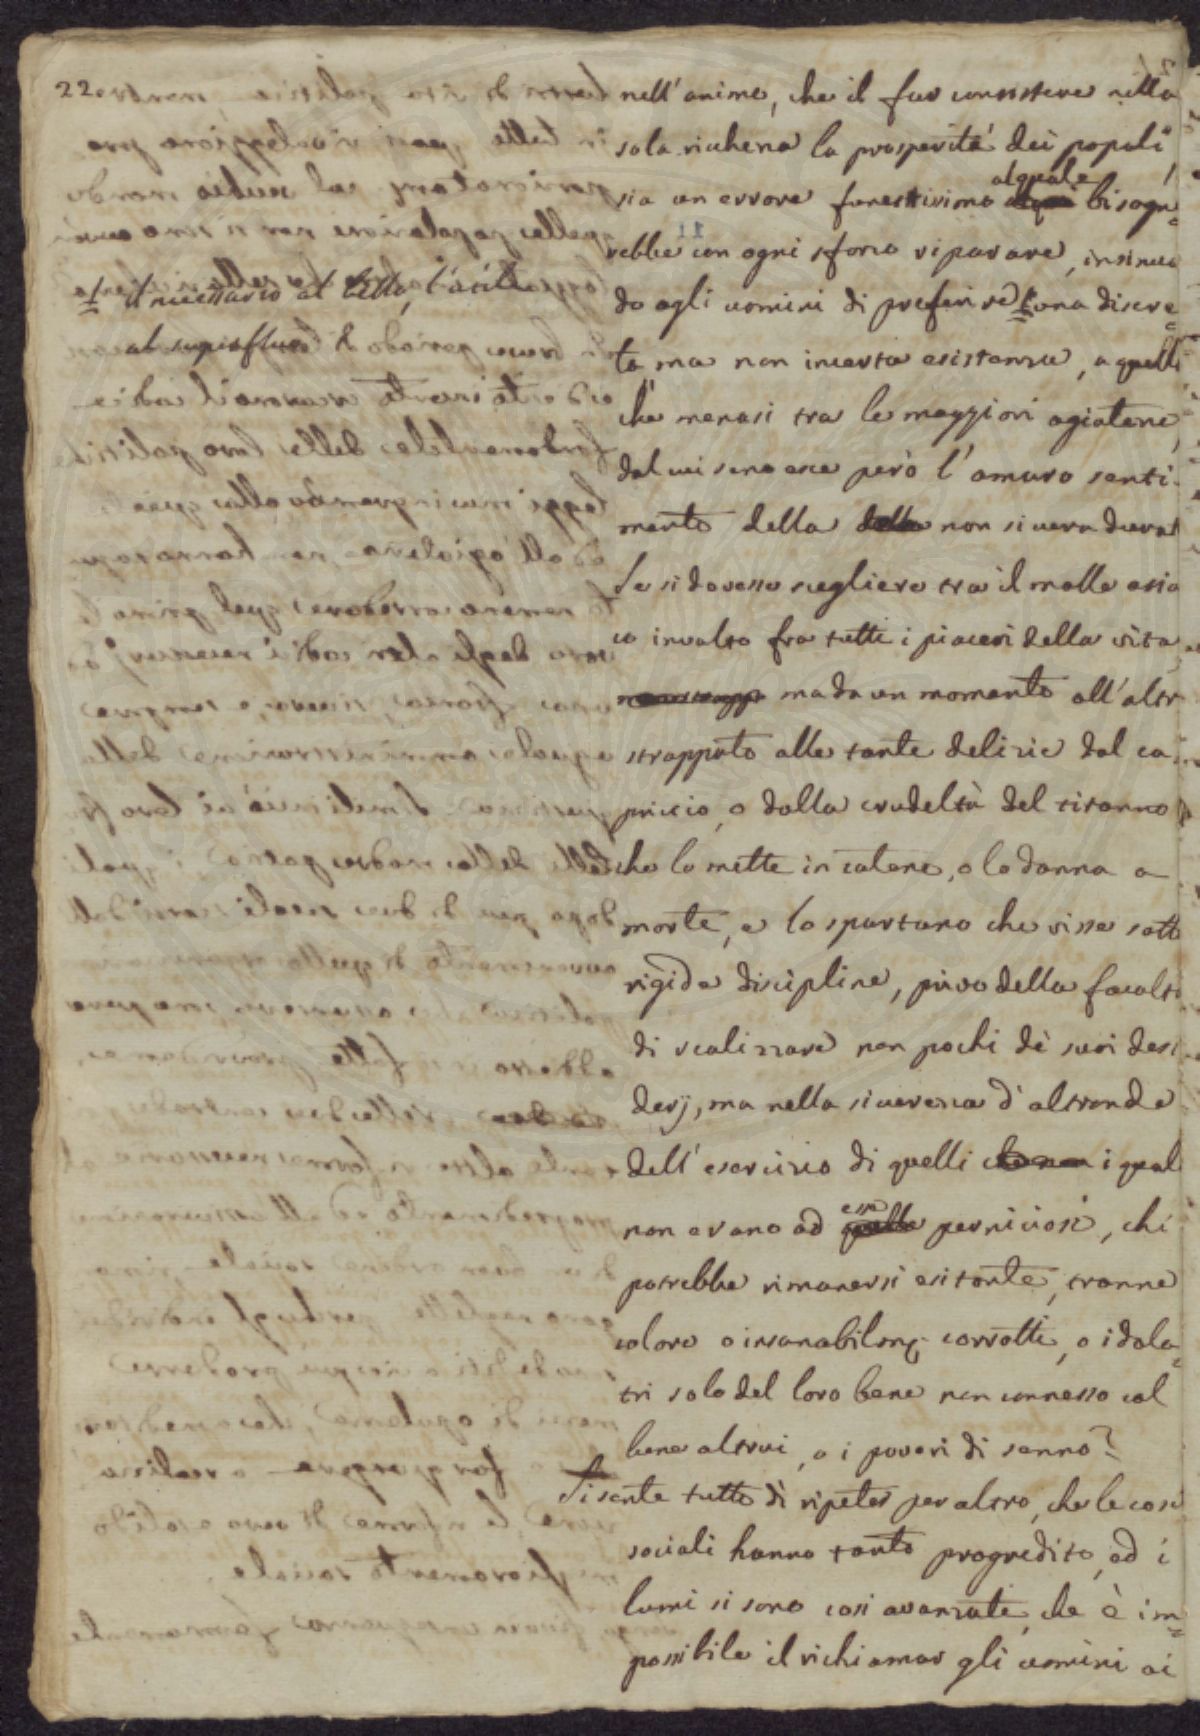 22.
nell'animo, che il far consistere nella
sola richezza la prosperità dei popoli
sia un errore funestissimo al quale bisogne=
rebbe con ogni sforzo riparare, insinuan
do agli uomini di preferire una discre=
ta ma non incerta esistenza, a quella
che menasi tra le maggiori agiatezze,
dal cui seno esce però l'amaro senti-
mento della della non sicura durat
Se si dovesse scegliere tra il molle asia
co involto fra tutti i piaceri della vita
ma da un momento all'altr
strappato alle tante delizie dal ca
priccio, o dalla crudeltà del tiranno
che lo mette in catene, o lo danna a
morte, e lo spartano che visse sotto
rigida disciplina, privo della facoltà
di realizzare non pochi de' suoi desi
derj, ma nella sicurezza d'altronde
dell'esercizio di quelli che non i quali
non erano ad essa quella perniciosi, chi
potrebbe rimanersi esitante, tranne
coloro o insanabilme corrotti, o idola=
tri solo del loro bene non connesso col
bene altrui, o i poveri di senno?
Si sente tutto dì ripeter per altro, che le cose
sociali hanno tanto progredito, ed i
lumi si sono così avanzati, che è im=
possibile il richiamar gli uomini ai
il necessario al bello, l'utile
al superfluo &